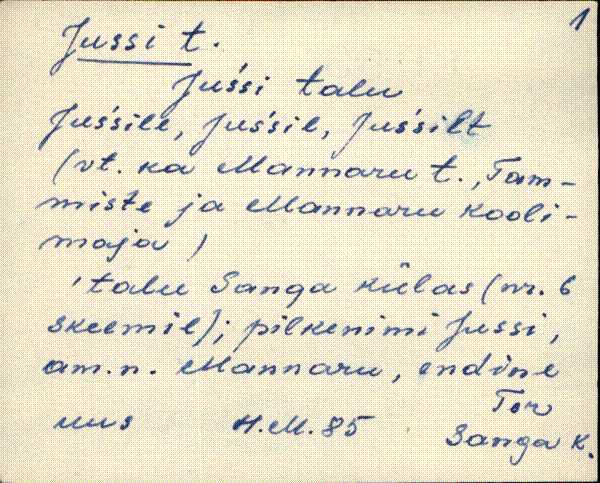 1
Jussi t.
Jus'si talu
Jus'sile, Jus'sil, Jus'silt
(vt. ka Mannaru t., Tam-
miste ja Mannaru kooli-
maja)
'talu Sanga külas (nr. 6
skeemil); pilkenimi Jussi,
am.n. Mannaru, endine
Tor
uus H.M. 85 Sanga k.